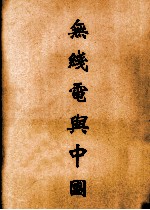 無綫電與中國